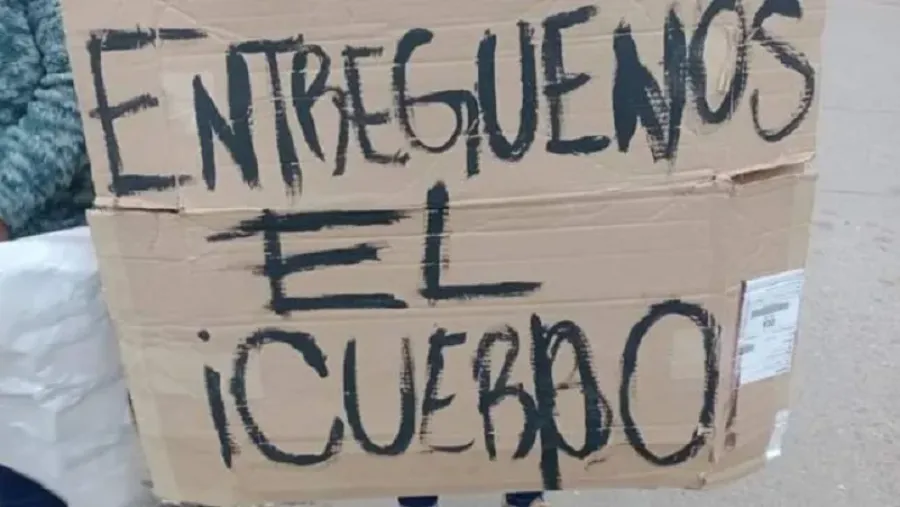 ENTREGUENOS
EL
¡CUERPO